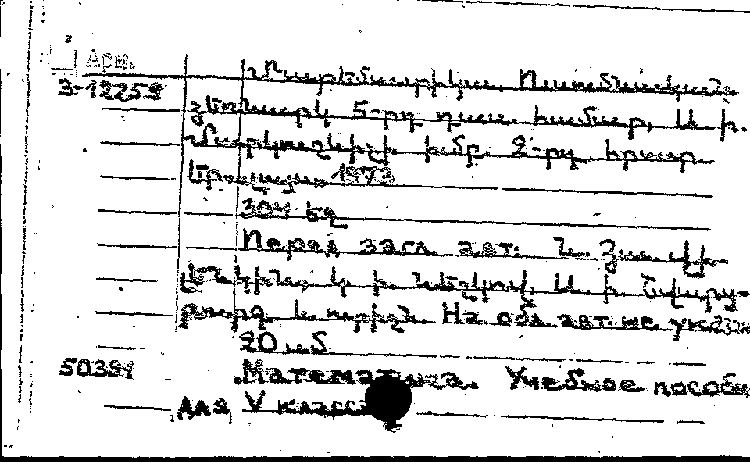 Арм.
Մաթեմատիկա. Ուսումնական
3-12259
ձեռնարկ 5-րդ դաս. համար, Ա. Ի.
Մարկուշևիչի խմբ. 2-րդ հրատ.
Եր., Լույս, 1973
304 էջ
Перед загл. авт.: Ն. Յա.
Կ. Ի. Նեշկով, Ա. Ի.
և ուրիշն. На обл. авт. не указан
20 սմ
50391
Математика. Учебное пособие
для V класса